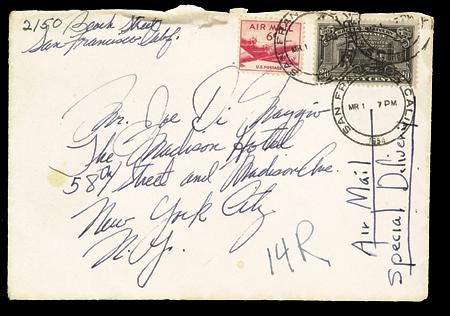 2150 Beach Street
San Francisco Calif.
AIR MAIL
6¢
U.S. POSTAGE
SAN FRAN
MAR 1
SAN FR CALIF
MAR 1 7 PM
1954
Mr. Joe Di Maggio
The Madison Hotel
58th Street and Madison Ave.
New York City
N.Y.
14R
Air Mail
Special Delivery